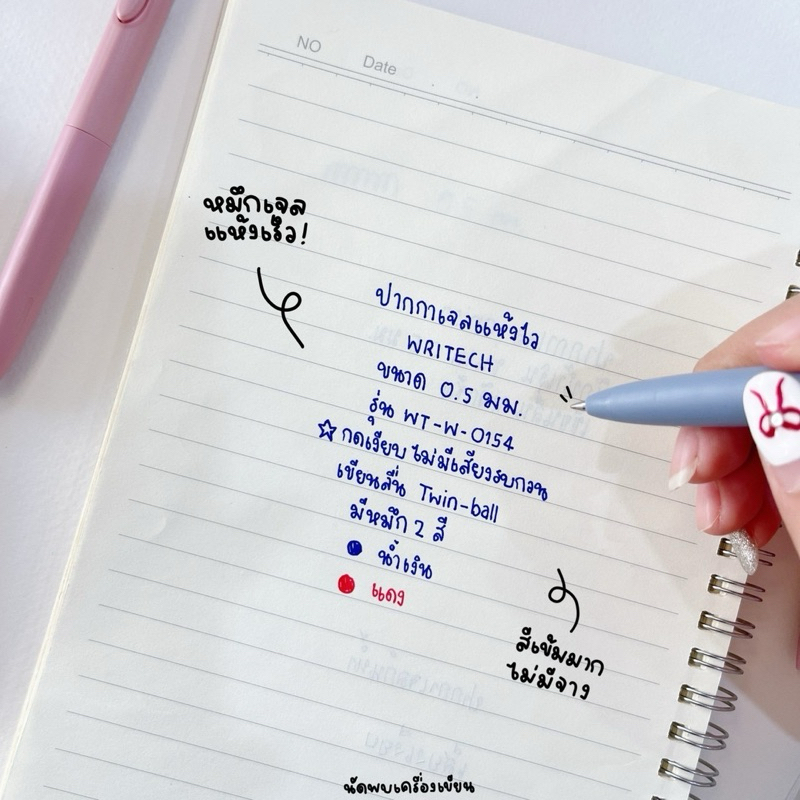 NO
Date
หมึกเจล
แห้งเร็ว!
ปากกาเจลแห้งไว
WRITECH
ขนาด 0.5 มม.
รุ่น WT-W-0154
☆ กดเงียบ ไม่มีเสียงรบกวน
เขียนลื่น Twin-ball
มีหมึก 2 สี
น้ำเงิน
แดง
สีเข้มมาก
ไม่มีจาง
นัดพบเครื่องเขียน